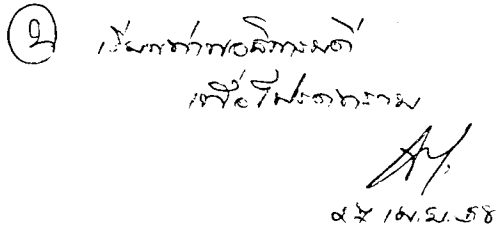 เรียนท่านอธิการบดี
เพื่อโปรดทราบ
เม.ย. ๕๘